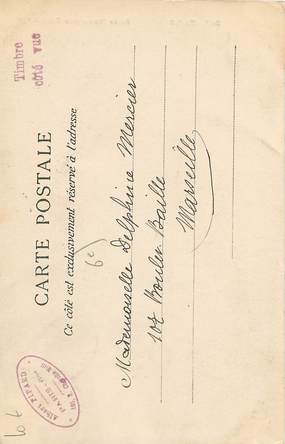 Timbre
côté vue
CARTE POSTALE
Ce côté est exclusivement réservé à l'adresse
6e
Mademoiselle Delphine Mercier
107 Boulev Baille
Marseille
PARIS